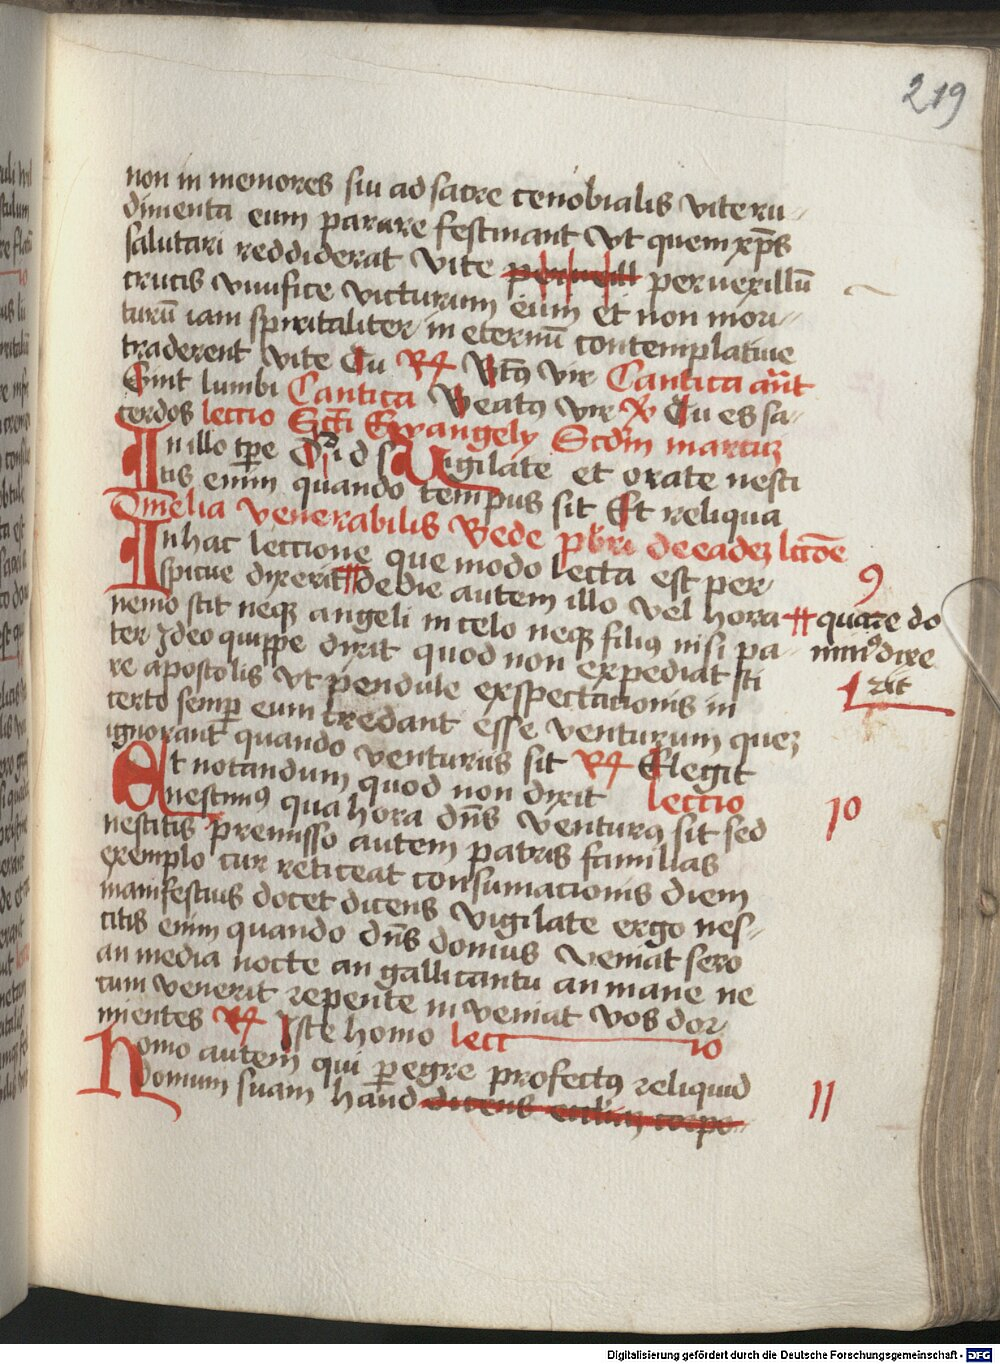 219
non in memores sui ad sacre cenobialis vite ru-
dimenta eum parare festinant vt quem xp̄s
salutari reddiderat vite peruexill per uexillū
crucis viuifice victurum eum et non mori-
turū iam spiritaliter in eternū contemplatiue
traderent vite Tu R Btꝰ vir Cantica an̄t
Sint lumbi Cantica Beatꝰ vir V Tu es sa-
cerdos lectio Sc̄ti Ewangely Scd̄m marcuȝ
In illo tp̄e D d s Vigilate et orate nesci
tis enim quando tempus sit Et reliqua
Omelia venerabilis Bede pb̄ri de eadeȝ lcc̄oe
In hac lectione que modo lecta est per
9
spicue dixerit de die autem illo vel hora quare do
nemo scit neqȝ angeli in celo neqȝ filiꝰ nisi pa- minꝰ dixe
ter Ideo quippe dixit quod non expediat sci rit
re apostolis vt pendule exspectationis in
certo semp eum credant esse venturum queȝ
ignorant quando venturus sit R Elegit
Et notandum quod non dixit lectio
10
nescimꝰ qua hora dn̄s venturꝰ sit sed
nescitis premisso autem patris familias
exemplo cur reticeat consumacionis diem
manifestius docet dicens vigilate ergo nes-
citis enim quando dn̄s domus veniat sero
an media nocte an gallicantu an mane ne
cum venerit repente in veniat vos dor
mientes R Iste homo lect 10
Homo autem qui pegre profectꝰ reliquid
11
domum suam haud dicens